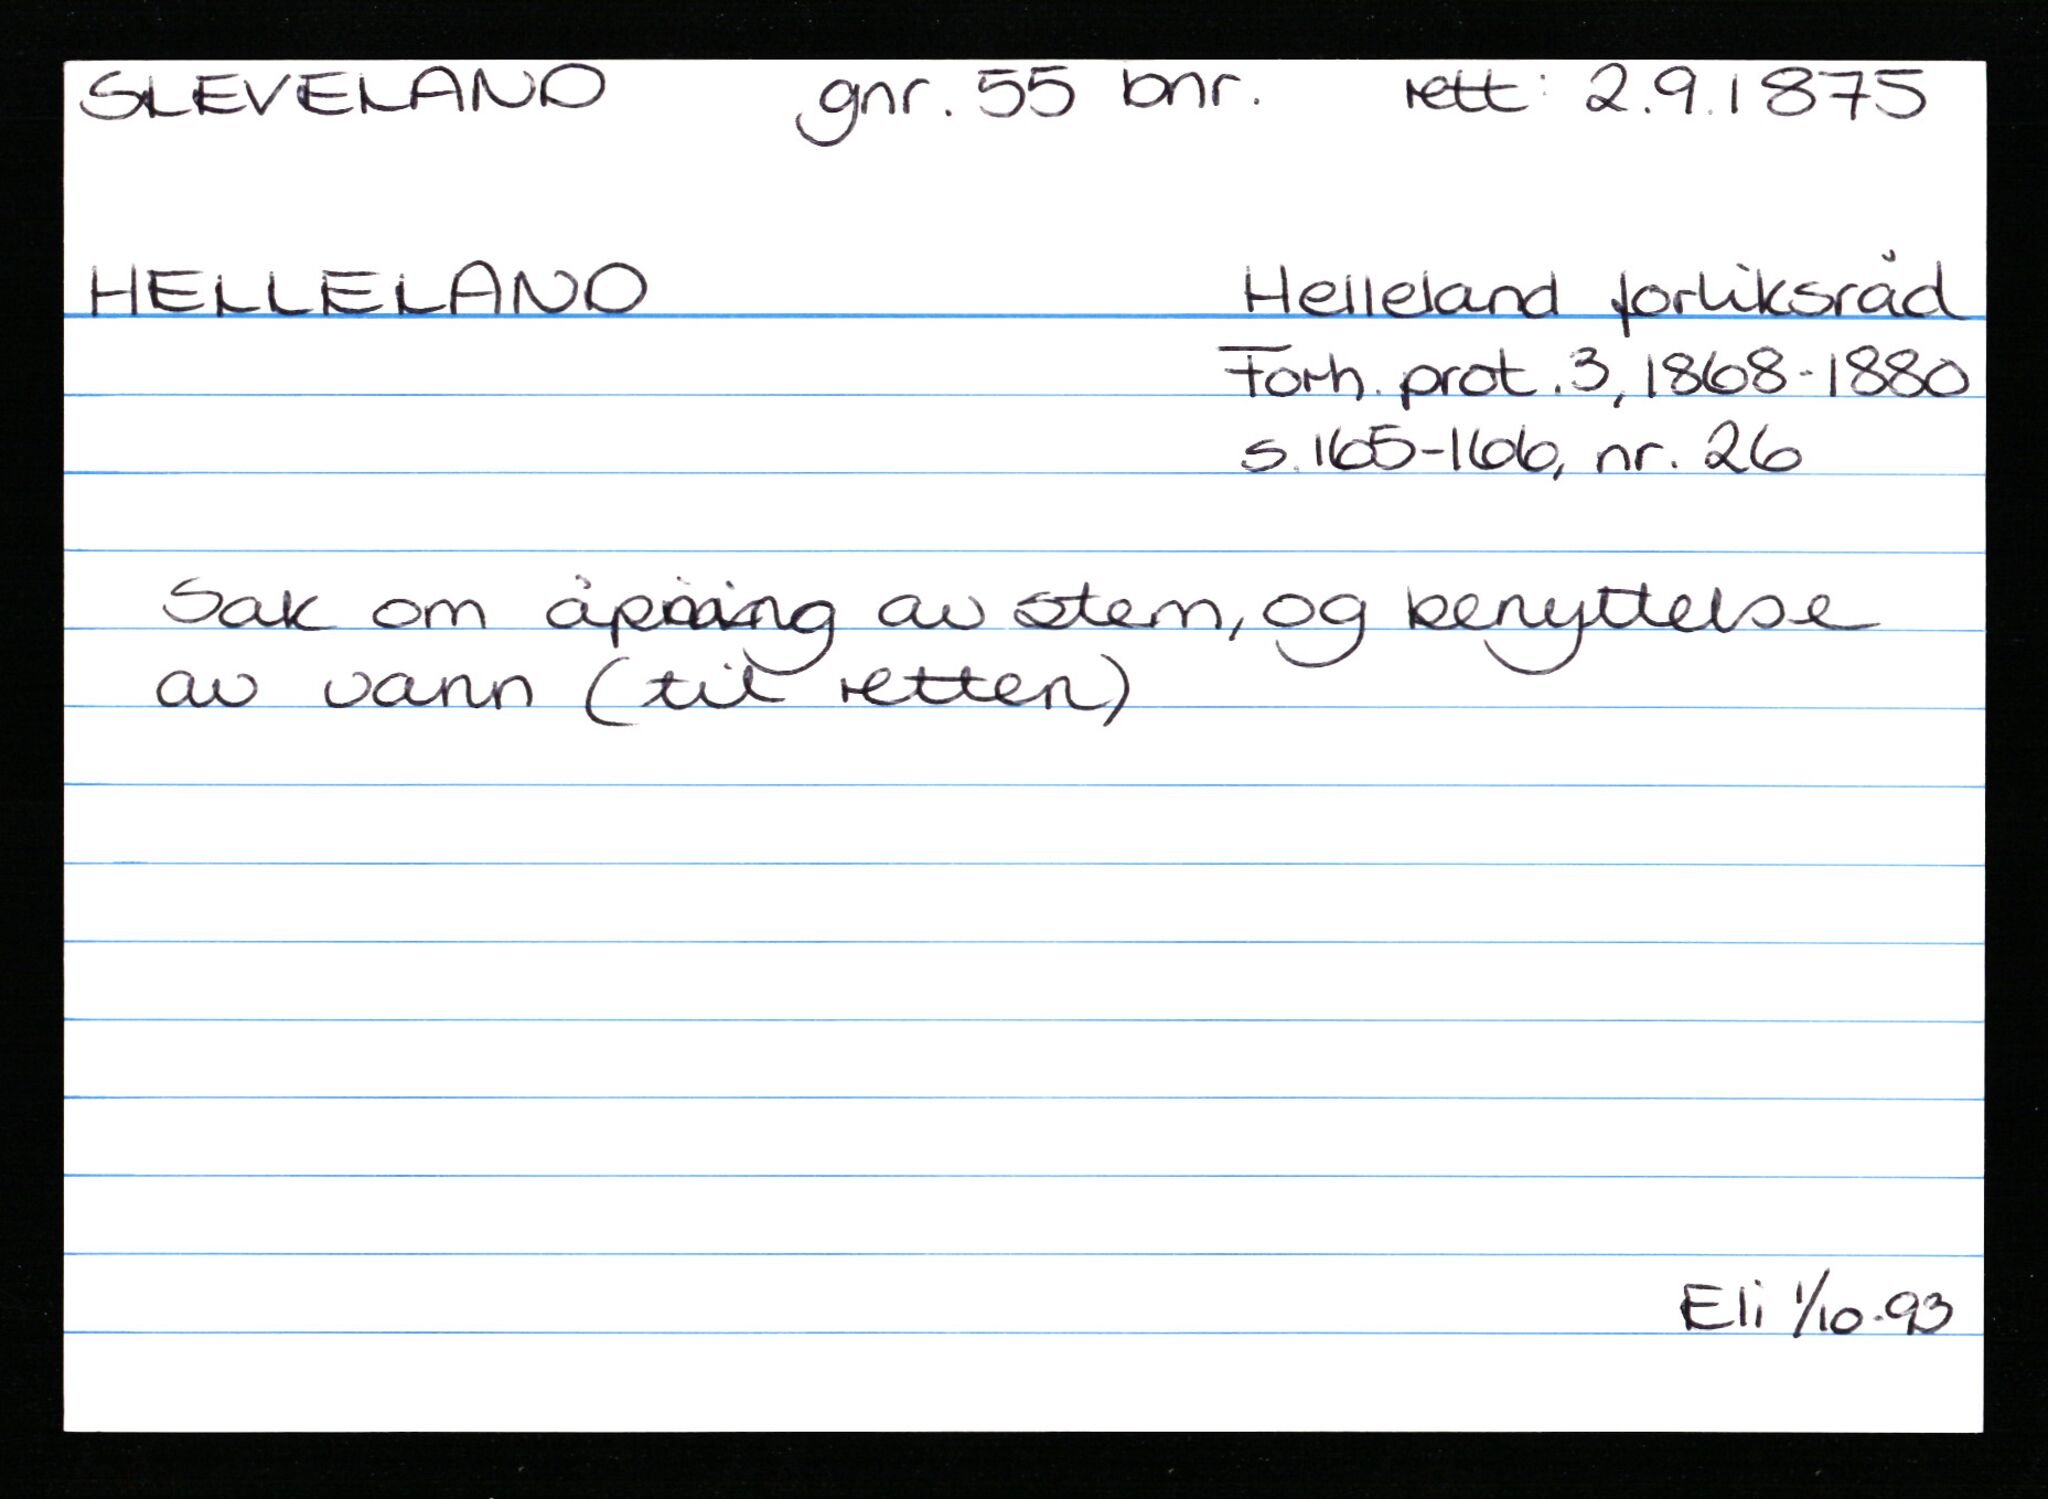 SLEVELAND gnr. 55 bnr. rett: 2.9.1875
HELLELAND Helleland forliksråd
Forh. prot. 3, 1868-1880
s. 165-166, nr. 26
Sak om åpning av stem, og benyttelse
av vann (til retten)
Eli 1/10-93